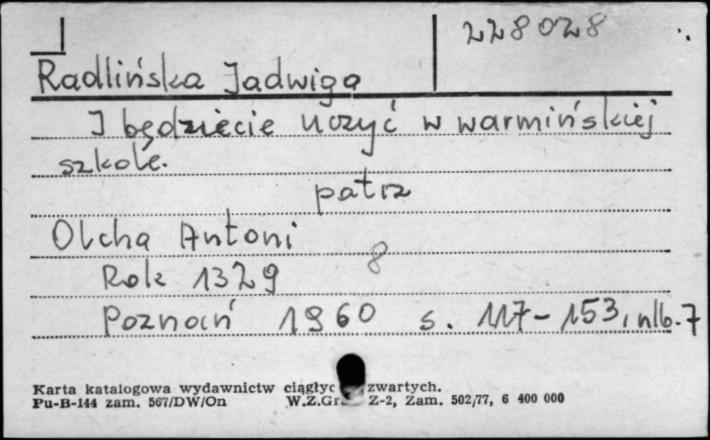 228028
Radlińska Jadwiga
I będziecie uczyć w warmińskiej
szkole.
patrz
Olcha Antoni
8
Rok 1329
Poznań 1960 s. 117-153, nlb. 7
Karta katalogowa wydawnictw ciągłyc zwartych.
Pu-B-144 zam. 567/DW/On W.Z.Gr. Z-2, Zam. 502/77, 6 400 000